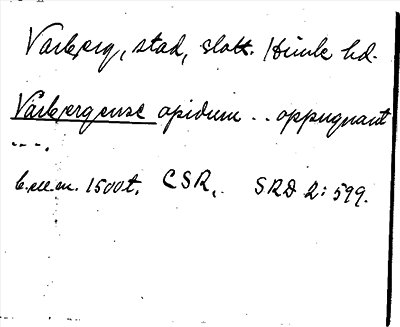 Varberg, stad, slott. Himle hd.
Varbergense opidum .. oppugnant
---.
b. m. 1500t. CSR, SRD 2: 599.